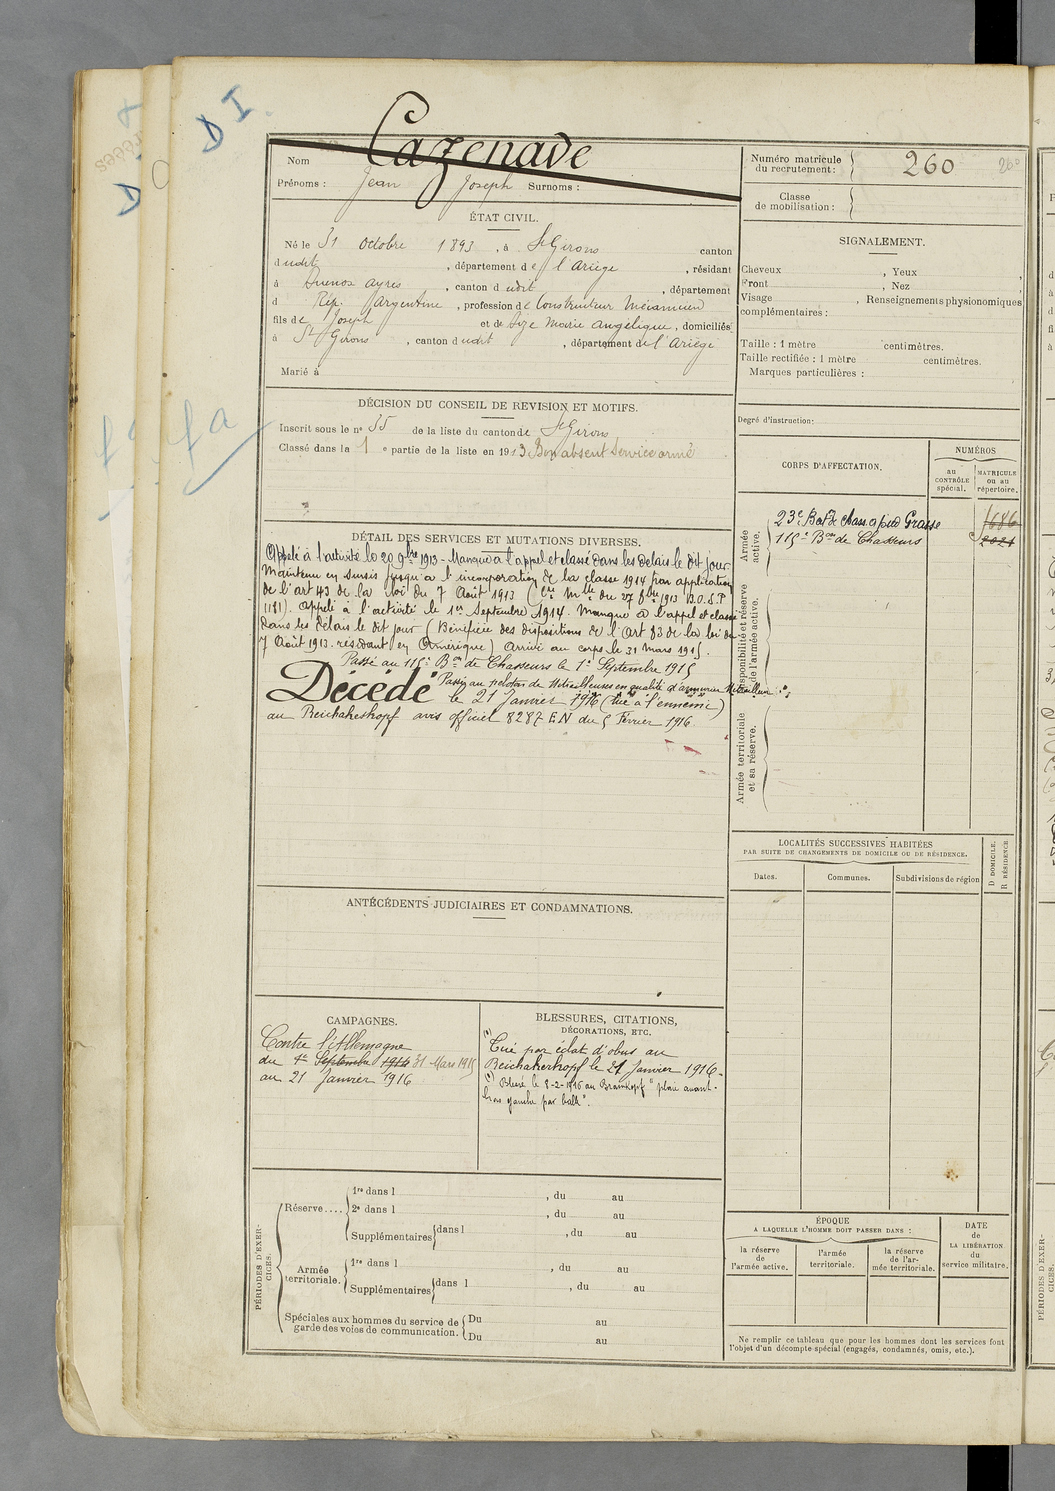 D I.
Cazenave
Nom
Prénoms : Jean Joseph Surnoms :
Numéro matricule du recrutement : 260
260
Classe de mobilisation :
ÉTAT CIVIL.
Né le 31 octobre 1893, à St Girons canton
dudit, département de l'Ariège, résidant
à Buenos ayres, canton dudit, département
d Rép. Argentine, profession de Constructeur Mécanicien
fils de Joseph et de Marie Angélique, domiciliés
à St Girons, canton dudit, département de l'Ariège
Marié à
SIGNALEMENT.
Cheveux , Yeux ,
Front , Nez ,
Visage , Renseignements physionomiques
complémentaires :
Taille : 1 mètre centimètres.
Taille rectifiée : 1 mètre centimètres.
Marques particulières :
Degré d'instruction :
DÉCISION DU CONSEIL DE REVISION ET MOTIFS.
Inscrit sous le no 35 de la liste du canton de St Girons
Classé dans la 1 e partie de la liste en 1913 Bon absent Service armé
fa
DÉTAIL DES SERVICES ET MUTATIONS DIVERSES.
Appelé à l'activité le 20 9bre 1913 - Manque à l'appel et classé dans les délais le dit jour
Maintenu en sursis jusqu'à l'incorporation de la classe 1914 par application
de l'art 43 de la loi du 7 Août 1913 (Cre Mlle du 27 1913 B.O.S.P
1181). appelé à l'activité le 1er Septembre 1914. Manque à l'appel et classé
dans les délais le dit jour (Bénéficie des dispositions de l'Art 83 de la loi du
7 Août 1913. résidant en Amérique) Arrivé au corps le 31 mars 1915.
Passé au 115e Bon de Chasseurs le 1er Septembre 1915
Passé au peloton de Mitrailleuses en qualité d'armurier Mitrailleur
Décédé le 21 Janvier 1916 (tué à l'ennemi)
au Reichakerkopf avis officiel 8287 EN du 5 Février 1916.
CORPS D'AFFECTATION.
NUMÉROS
au CONTRÔLE spécial.
MATRICULE ou au répertoire.
Armée active.
23e Bat de Chass. a pied Grasse 1686
115e Bon de Chasseurs 2021
Disponibilité et réserve de l'armée active.
Armée territoriale et sa réserve.
LOCALITÉS SUCCESSIVES HABITÉES
PAR SUITE DE CHANGEMENTS DE DOMICILE OU DE RÉSIDENCE.
Dates.
Communes.
Subdivisions de région
D DOMICILE.
R RÉSIDENCE
ANTÉCÉDENTS JUDICIAIRES ET CONDAMNATIONS.
CAMPAGNES.
Contre l'Allemagne
du 1er Septembre 1914 31 Mars 1915
au 21 Janvier 1916
BLESSURES, CITATIONS,
DÉCORATIONS, ETC.
Tué par éclat d'obus au
Reichakerkopf le 21 Janvier 1916.
Blessé le 8-2-1916 au "plaie avant-
bras gauche par balle".
PÉRIODES D'EXERCICES.
Réserve....
1re dans l , du au
2e dans l , du au
Supplémentaires dans l , du au
Armée territoriale.
1re dans l , du au
Supplémentaires dans l , du au
Spéciales aux hommes du service de
garde des voies de communication.
Du au
Du au
ÉPOQUE
A LAQUELLE L'HOMME DOIT PASSER DANS :
la réserve de l'armée active.
l'armée territoriale.
la réserve de l'armée territoriale.
DATE
DE
LA LIBÉRATION
du
service militaire.
Ne remplir ce tableau que pour les hommes dont les services font
l'objet d'un décompte spécial (engagés, condamnés, omis, etc.).